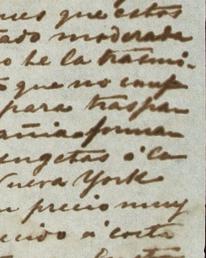 nes que estos
tado moderada
o he la trasmi-
que no comp
para traspa
añia forman
sugetas á la
Nueva York
n precio muy
cido á costa